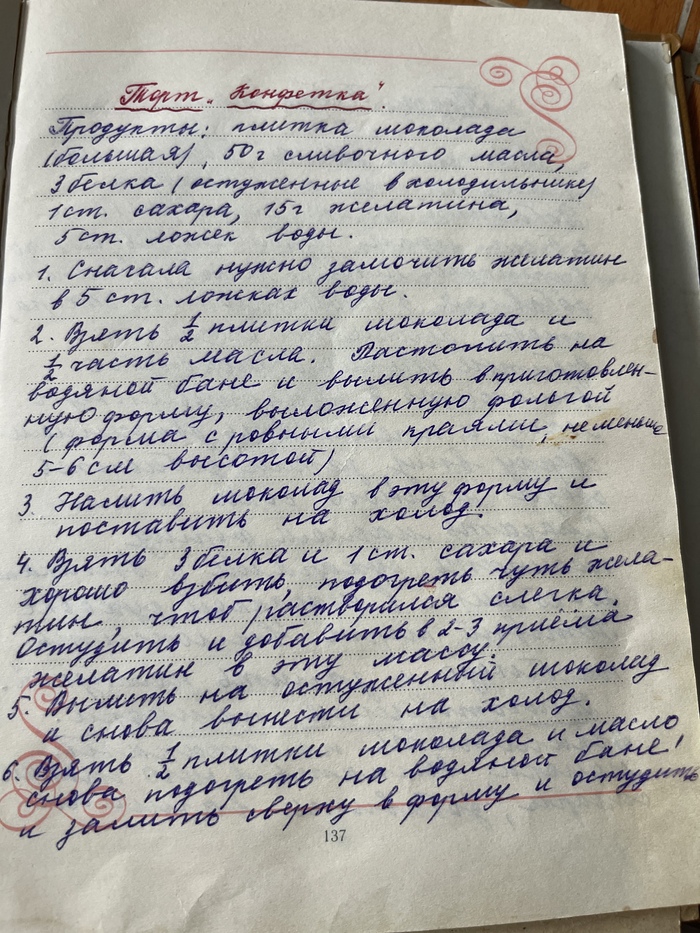 Торт „Конфетка".
Продукты: плитка шоколада
(большая), 50 г сливочного масла,
3 белка (остуженные в холодильнике)
1 ст. сахара, 15 г желатина,
5 ст. ложек воды.
1. Сначала нужно замочить желатин
в 5 ст. ложках воды.
2. Взять 1/2 плитки шоколада и
1/2 часть масла. Растопить на
водяной бане и вылить в приготовлен-
ную форму, выложенную фольгой
(форма с ровными краями, не меньше
5-6 см высотой)
3. Налить шоколад в эту форму и
поставить на холод.
4. Взять 3 белка и 1 ст. сахара и
хорошо взбить, подогреть чуть жела-
тин, чтоб растворился слегка.
Остудить и добавить в 2-3 приёма
желатин в эту массу.
5. Вылить на остуженный шоколад
и снова вынести на холод.
6. Взять 1/2 плитки шоколада и масло
снова подогреть на водяной бане!
и залить сверху в форму и остудить
137